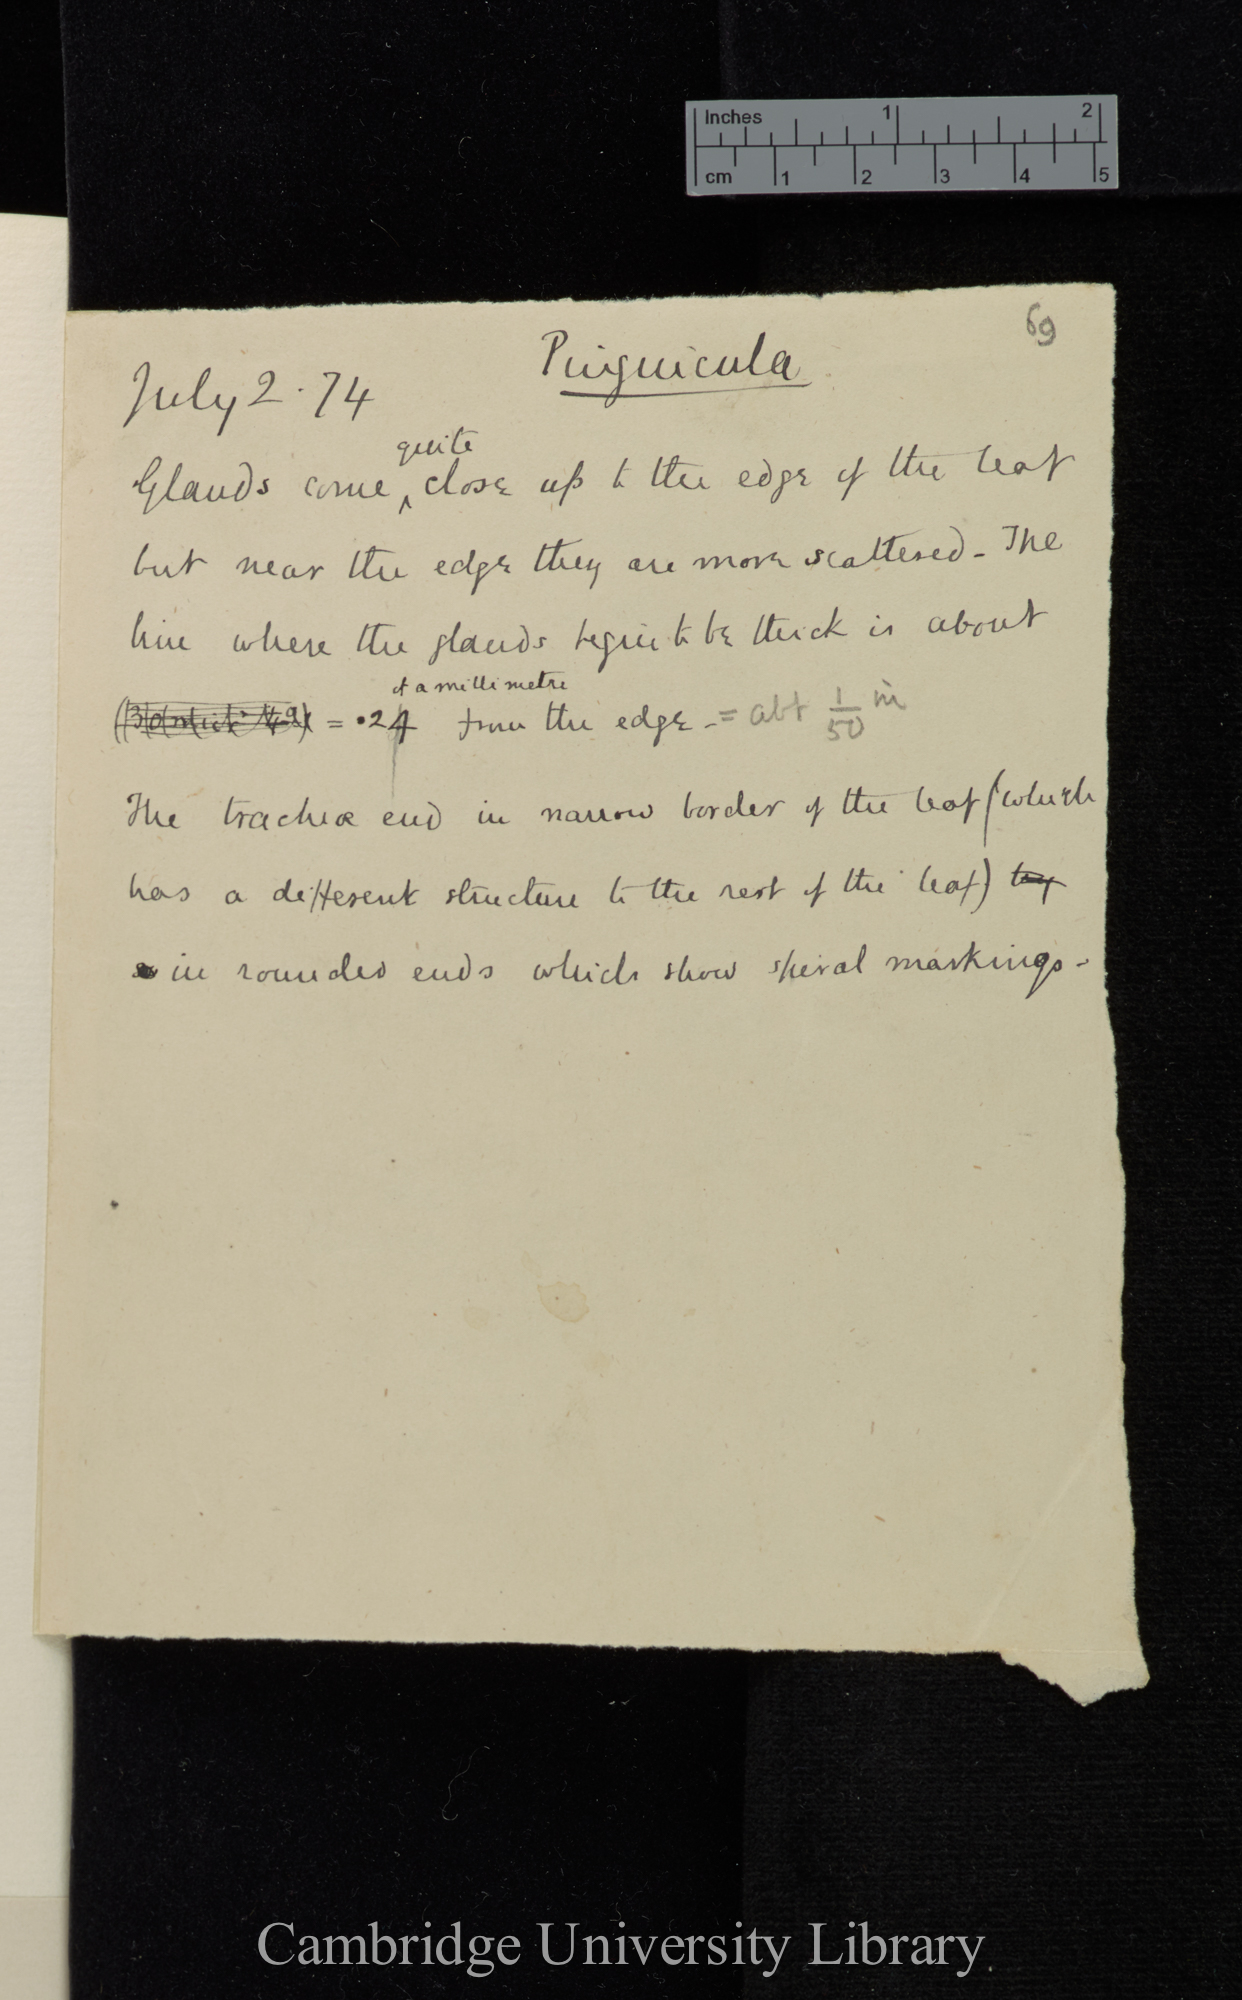 Inches 1 2
cm 1 2 3 4 5
69
Pinguicula
July 2. 74
quite
Glands come ‸ close up to the edge of the leaf
but near the edge they are more scattered - The
line where the glands begin to be thick is about
of a millimetre
= .24 from the edge - = abt 1/50 in
The tracheæ end in narrow border of the leaf (which
has a different structure to the rest of the leaf)
in rounded ends which show spiral markings -
Cambridge University Library